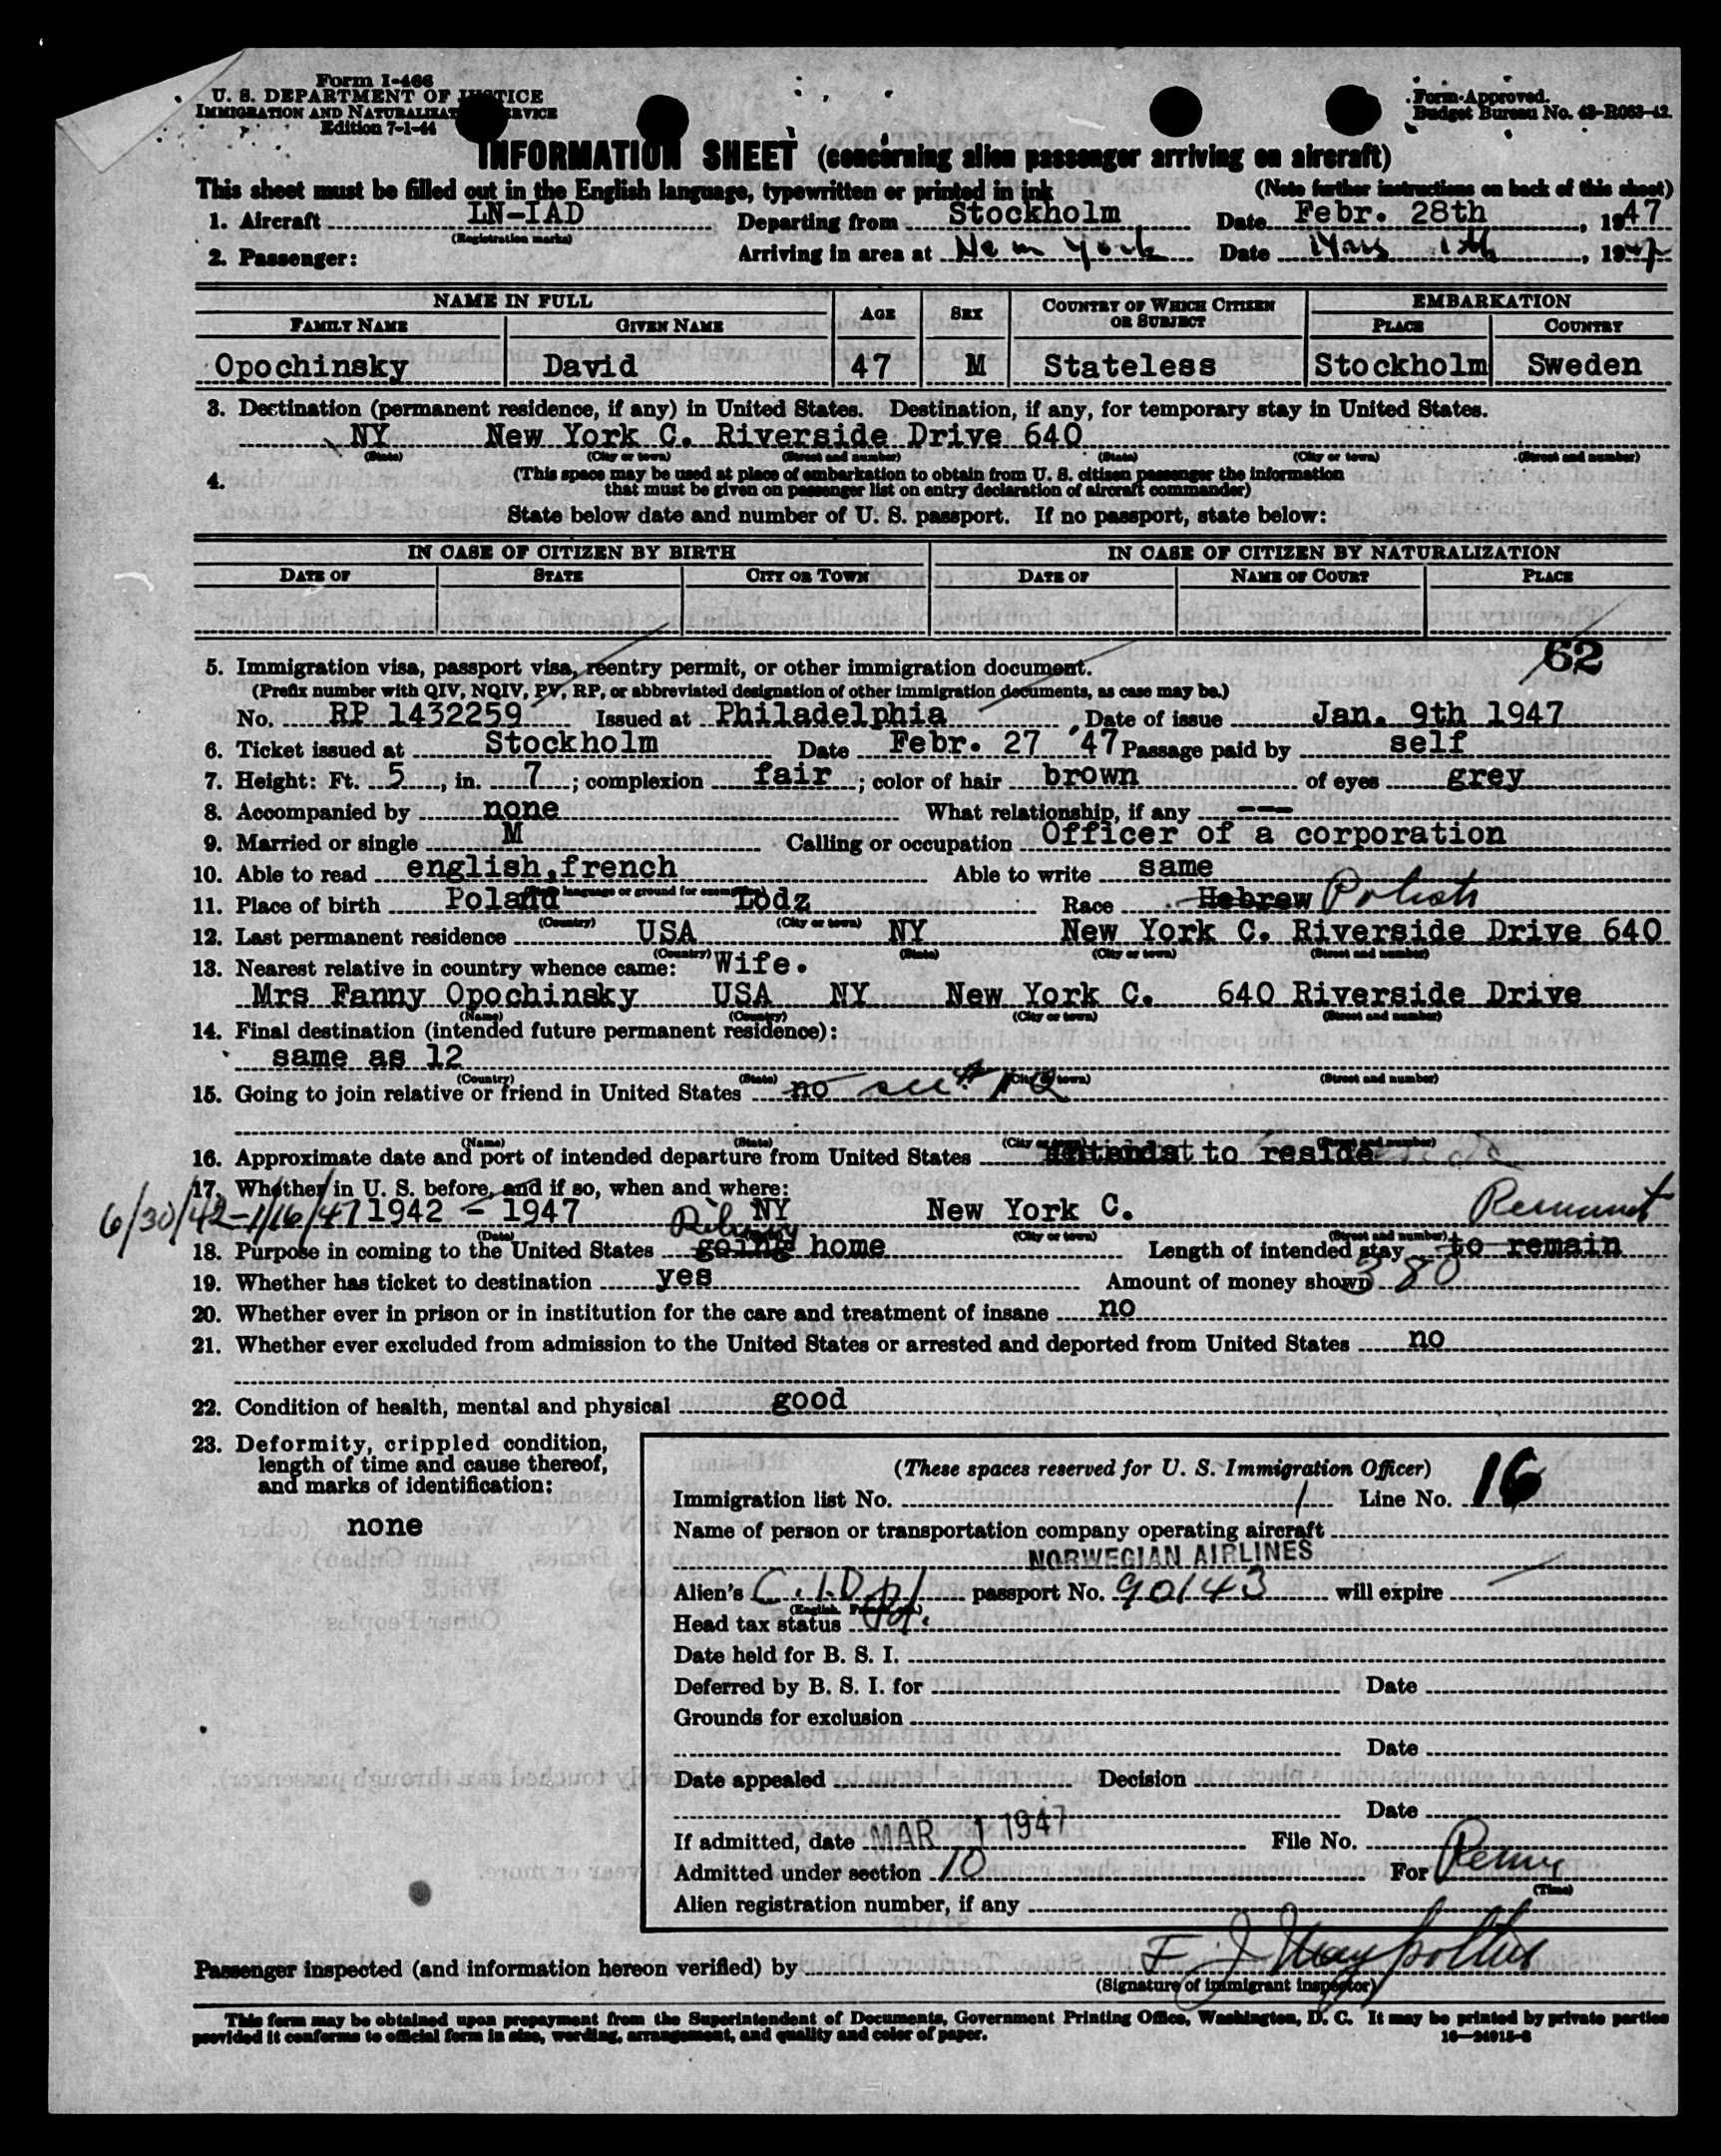 Form I-466
U. S. DEPARTMENT OF JUSTICE
IMMIGRATION AND NATURALIZATION SERVICE
Edition 7-1-44
Form Approved.
Budget Bureau No. 43-R063-42.
INFORMATION SHEET (concerning alien passenger arriving on aircraft)
This sheet must be filled out in the English language, typewritten or printed in ink (Note further instructions on back of this sheet)
1. Aircraft LN-IAD Departing from Stockholm Date Febr. 28th, 1947
(Registration marks)
2. Passenger: Arriving in area at New York Date Mars 1th, 1947
NAME IN FULL AGE SEX COUNTRY OF WHICH CITIZEN OR SUBJECT EMBARKATION
FAMILY NAME GIVEN NAME PLACE COUNTRY
Opochinsky David 47 M Stateless Stockholm Sweden
3. Destination (permanent residence, if any) in United States. Destination, if any, for temporary stay in United States.
NY New York C. Riverside Drive 640
(State) (City or town) (Street and number) (State) (City or town) (Street and number)
4. (This space may be used at place of embarkation to obtain from U. S. citizen passenger the information
that must be given on passenger list on entry declaration of aircraft commander)
State below date and number of U. S. passport. If no passport, state below:
IN CASE OF CITIZEN BY BIRTH IN CASE OF CITIZEN BY NATURALIZATION
DATE OF STATE CITY OR TOWN DATE OF NAME OF COURT PLACE
62
5. Immigration visa, passport visa, reentry permit, or other immigration document.
(Prefix number with QIV, NQIV, PV, RP, or abbreviated designation of other immigration documents, as case may be.)
No. RP 1432259 Issued at Philadelphia Date of issue Jan. 9th 1947
6. Ticket issued at Stockholm Date Febr. 27 '47 Passage paid by self
7. Height: Ft. 5, in. 7; complexion fair; color of hair brown of eyes grey
8. Accompanied by none What relationship, if any ---
9. Married or single M Calling or occupation Officer of a corporation
10. Able to read english,french Able to write same
(State language or ground for exemption)
11. Place of birth Poland Lodz Race Hebrew Polish
(Country) (City or town)
12. Last permanent residence USA NY New York C. Riverside Drive 640
(Country) (State) (City or town) (Street and number)
13. Nearest relative in country whence came: Wife.
Mrs Fanny Opochinsky USA NY New York C. 640 Riverside Drive
(Name) (Country) (City or town) (Street and number)
14. Final destination (intended future permanent residence):
same as 12
(Country) (State) (City or town) (Street and number)
15. Going to join relative or friend in United States no see # 12
(Name) (State) (City or town) (Street and number)
16. Approximate date and port of intended departure from United States to reside
17. Whether in U. S. before, and if so, when and where:
6/30/42-1/16/47 1942 - 1947 NY New York C.
(Date) (City or town) (Street and number)
18. Purpose in coming to the United States going home Length of intended stay to remain
19. Whether has ticket to destination yes Amount of money shown 380
20. Whether ever in prison or in institution for the care and treatment of insane no
21. Whether ever excluded from admission to the United States or arrested and deported from United States no
22. Condition of health, mental and physical good
23. Deformity, crippled condition,
length of time and cause thereof,
and marks of identification:
none
(These spaces reserved for U. S. Immigration Officer)
Immigration list No. 1 Line No. 16
Name of person or transportation company operating aircraft
NORWEGIAN AIRLINES
Alien's passport No. 90143 will expire
Head tax status
Date held for B. S. I.
Deferred by B. S. I. for Date
Grounds for exclusion
Date
Date appealed Decision
Date
If admitted, date MAR 1 1947 File No.
Admitted under section 10 For
(Time)
Alien registration number, if any
Passenger inspected (and information hereon verified) by
(Signature of immigrant inspector)
This form may be obtained upon prepayment from the Superintendent of Documents, Government Printing Office, Washington, D. C. It may be printed by private parties
provided it conforms to official form in size, wording, arrangement, and quality and color of paper. 16—24915-2